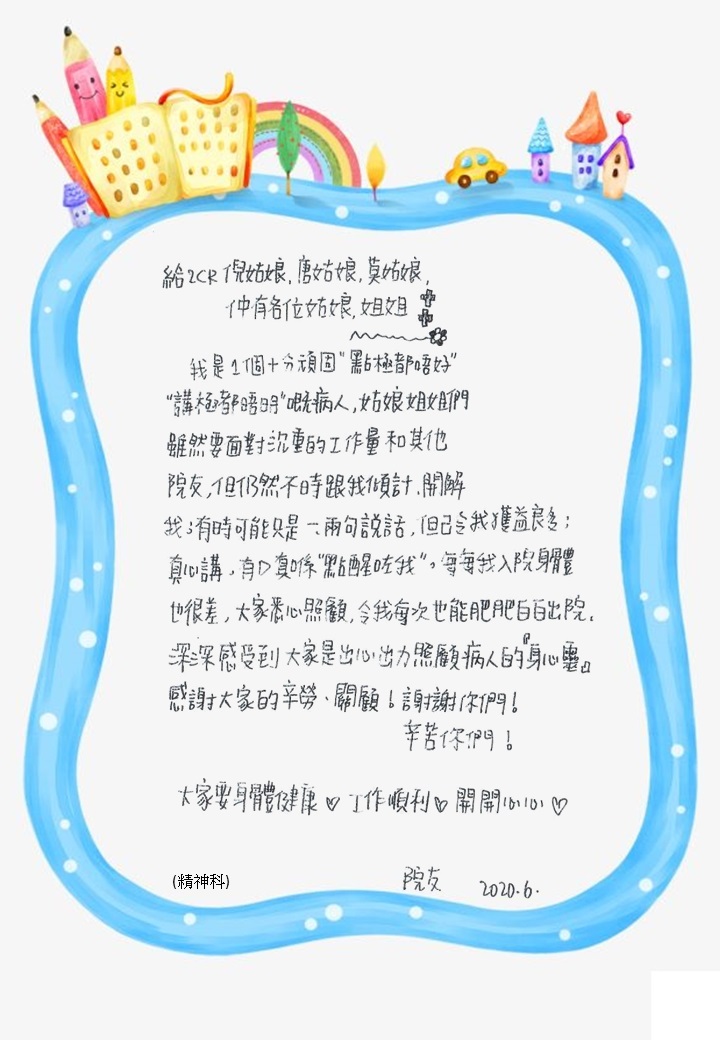 給2CR 倪姑娘,唐姑娘,莫姑娘,
仲有各位姑娘,姐姐
我是1個十分頑固"點極都唔好"
"講極都唔明"嘅病人,姑娘姐姐們
雖然要面對沉重的工作量和其他
院友,但仍然不時跟我傾計、開解
我;有時可能只是一、兩句說話,但已令我獲益良多;
真心講,有D真係"點醒咗我"。每每我入院身體
也很差,大家悉心照顧,令我每次也能肥肥白白出院.
深深感受到大家是出心出力照顧病人的『身心靈』
感謝大家的辛勞、關顧!謝謝你們!
辛苦你們!
大家要身體健康♡工作順利♡開開心心♡
(精神科) 院友 2020.6.